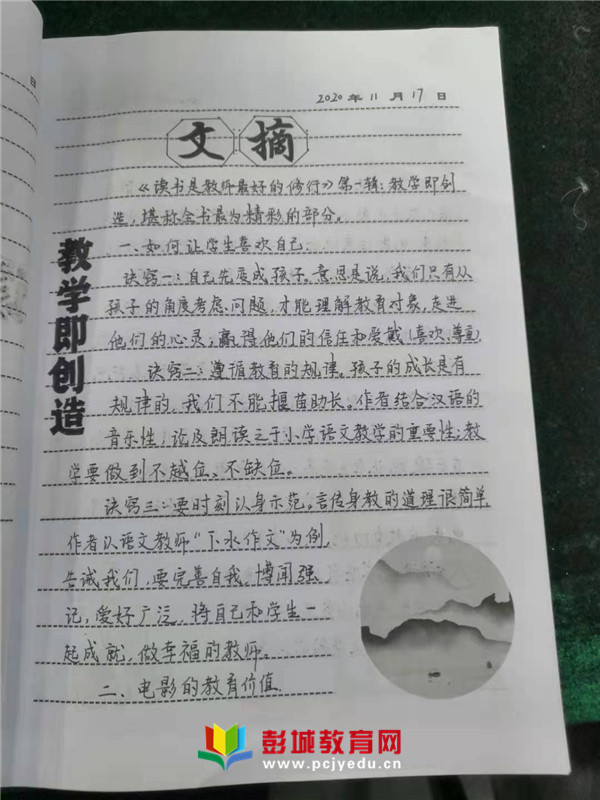 日
2020 年 11 月 17 日
文摘
教学即创造
《读书是教师最好的修行》第一辑：教学即创
造，堪称全书最为精彩的部分。
一、如何让学生喜欢自己
诀窍一：自己先变成孩子。意思是说，我们只有从
孩子的角度考虑问题，才能理解教育对象，走进
他们的心灵，赢得他们的信任和爱戴（喜欢、尊重）
诀窍二：遵循教育的规律。孩子的成长是有
规律的，我们不能揠苗助长。作者结合汉语的
音乐性，论及朗读之于小学语文教学的重要性；教
学要做到不越位、不缺位。
诀窍三：要时刻以身示范。言传身教的道理很简单
作者以语文教师“下水作文”为例，
告诫我们，要完善自我，博闻强
记，爱好广泛，将自己和学生一
起成就，做幸福的教师。
二、电影的教育价值
彭城教育网
www.pcjyedu.cn